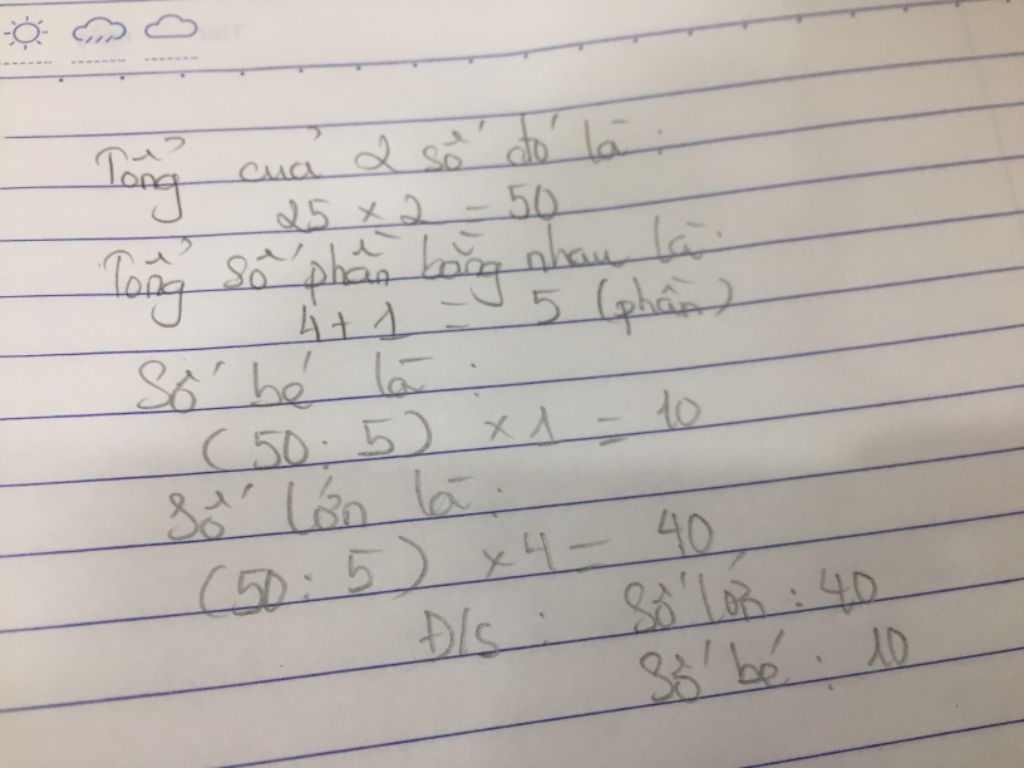 Tổng của 2 số đó là :
25 x 2 = 50
Tổng số phần bằng nhau là :
4 + 1 = 5 (phần)
Số bé là :
(50 : 5) x 1 = 10
Số lớn là :
(50 : 5) x 4 = 40
Đ/S : Số lớn : 40
Số bé : 10